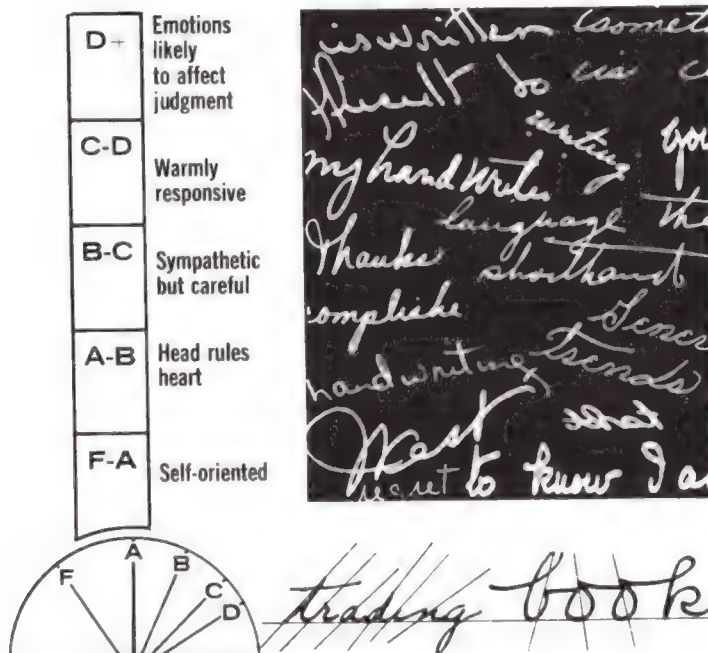 D+
Emotions
likely
to affect
judgment
C-D
Warmly
responsive
B-C
Sympathetic
but careful
A-B
Head rules
heart
F-A
Self-oriented
F A B C D
is written (somet
to us
writing you
my hand writes
language the
Thanks shorthand
omplishe Gener
handwriting Trends
West
regret to know I a
trading book